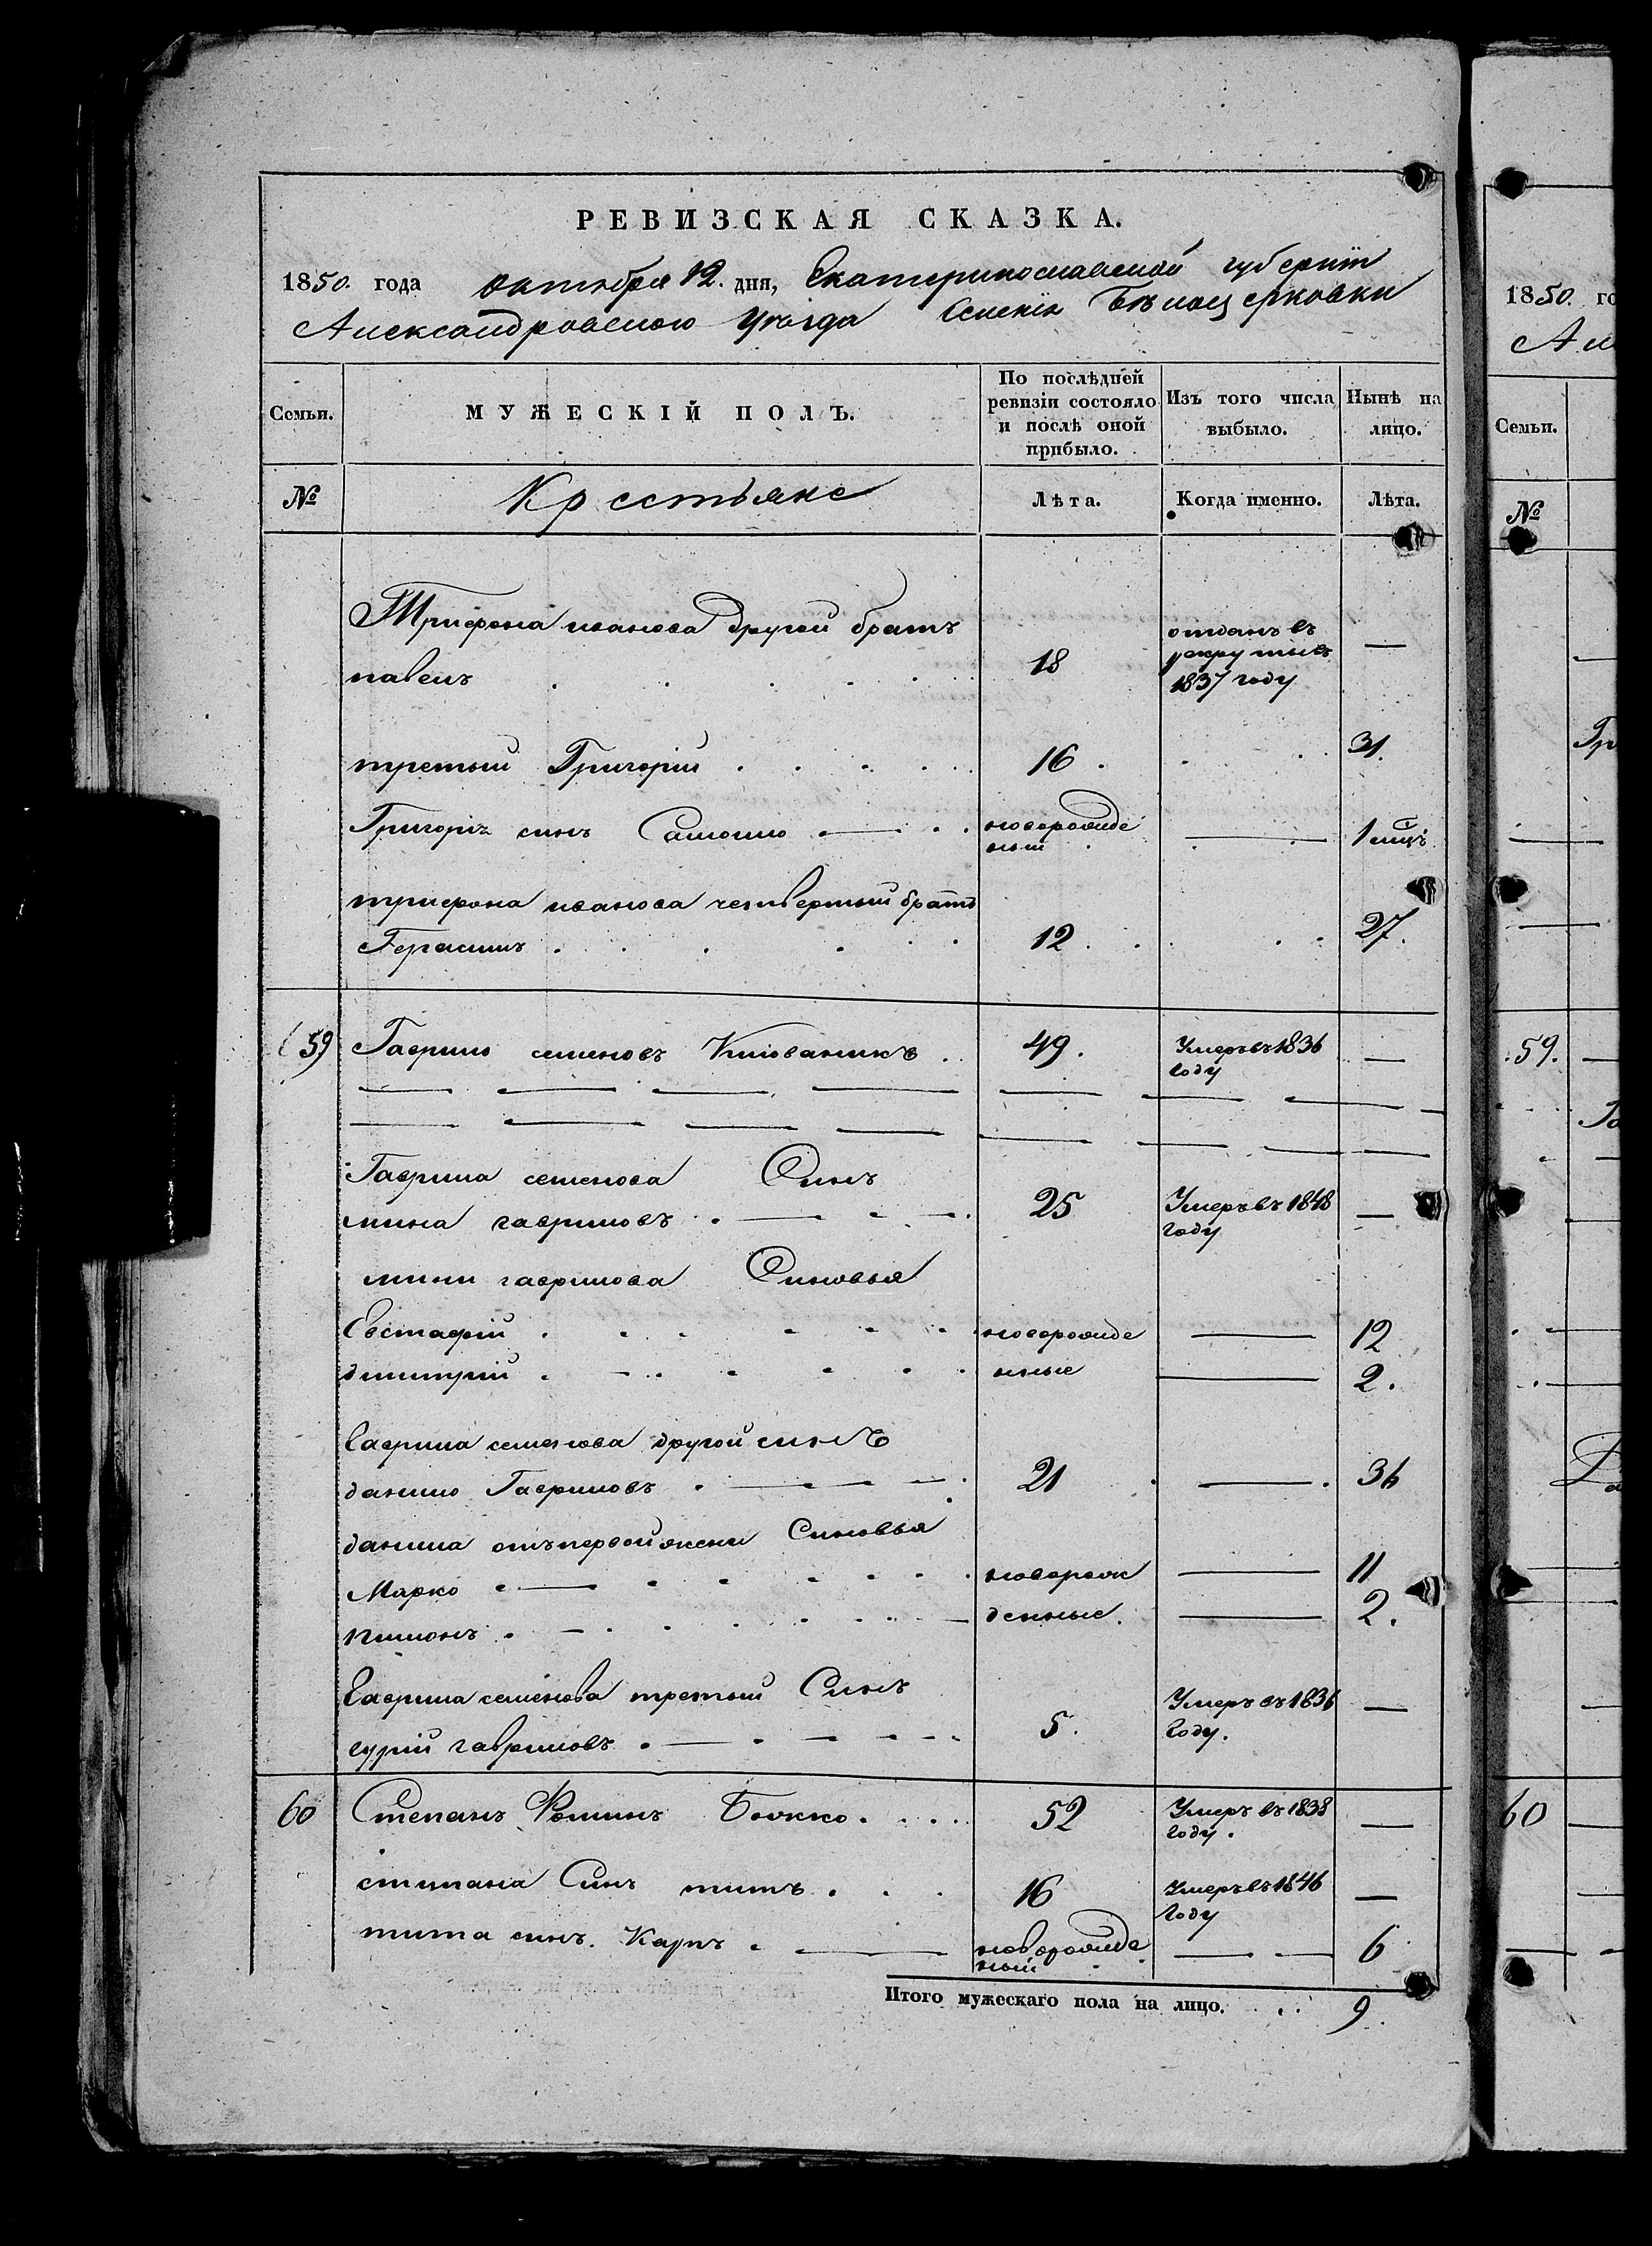 РЕВИЗСКАЯ СКАЗКА.
1850. года октября 12. дня, Екатеринославской губерніи
Александровского уѣзда Селенія Бѣлоцерковки
Семьи.
МУЖЕСКІЙ ПОЛЪ.
По послѣдней ревизіи состояло и послѣ оной прибыло.
Изъ того числа выбыло.
Нынѣ на лицо.
№
Крестьяне
Лѣта.
Когда именно.
Лѣта.
Трифона иванова другой братъ
павелъ 18 отданъ въ рекруты въ 1837 году —
третый Григорій 16. 31.
Григорія синъ Самоило новорожде ный — 1 мцъ
трифона иванова четвертый братъ
Герасимъ 12. 27.
59 Гаврило семеновъ 49. Умеръ въ 1836 году —
Гаврила семенова Синъ
мина гавриловъ 25 Умеръ въ 1848 году —
мини гаврилова Синовья
Евстафій новорожде — 12
дмитрій нные — 2.
Гаврила семенова другой синъ
данило Гавриловъ 21 — 36
данила отъ первой жени Синовья
Марко новорож — 11
денные. — 2.
Гаврила семенова третый Синъ
гурій гавриловъ 5. Умеръ въ 1836 году. —
60 Степанъ Фоминъ Божко 52 Умеръ въ 1838 году. —
степана Синъ титъ 16 Умеръ въ 1846 году —
тита синъ. Карпъ новорожде ный — 6
Итого мужескаго пола на лицо. 9.
1850. го
Ал
Семьи.
№
Гр
59.
Га
Да
60